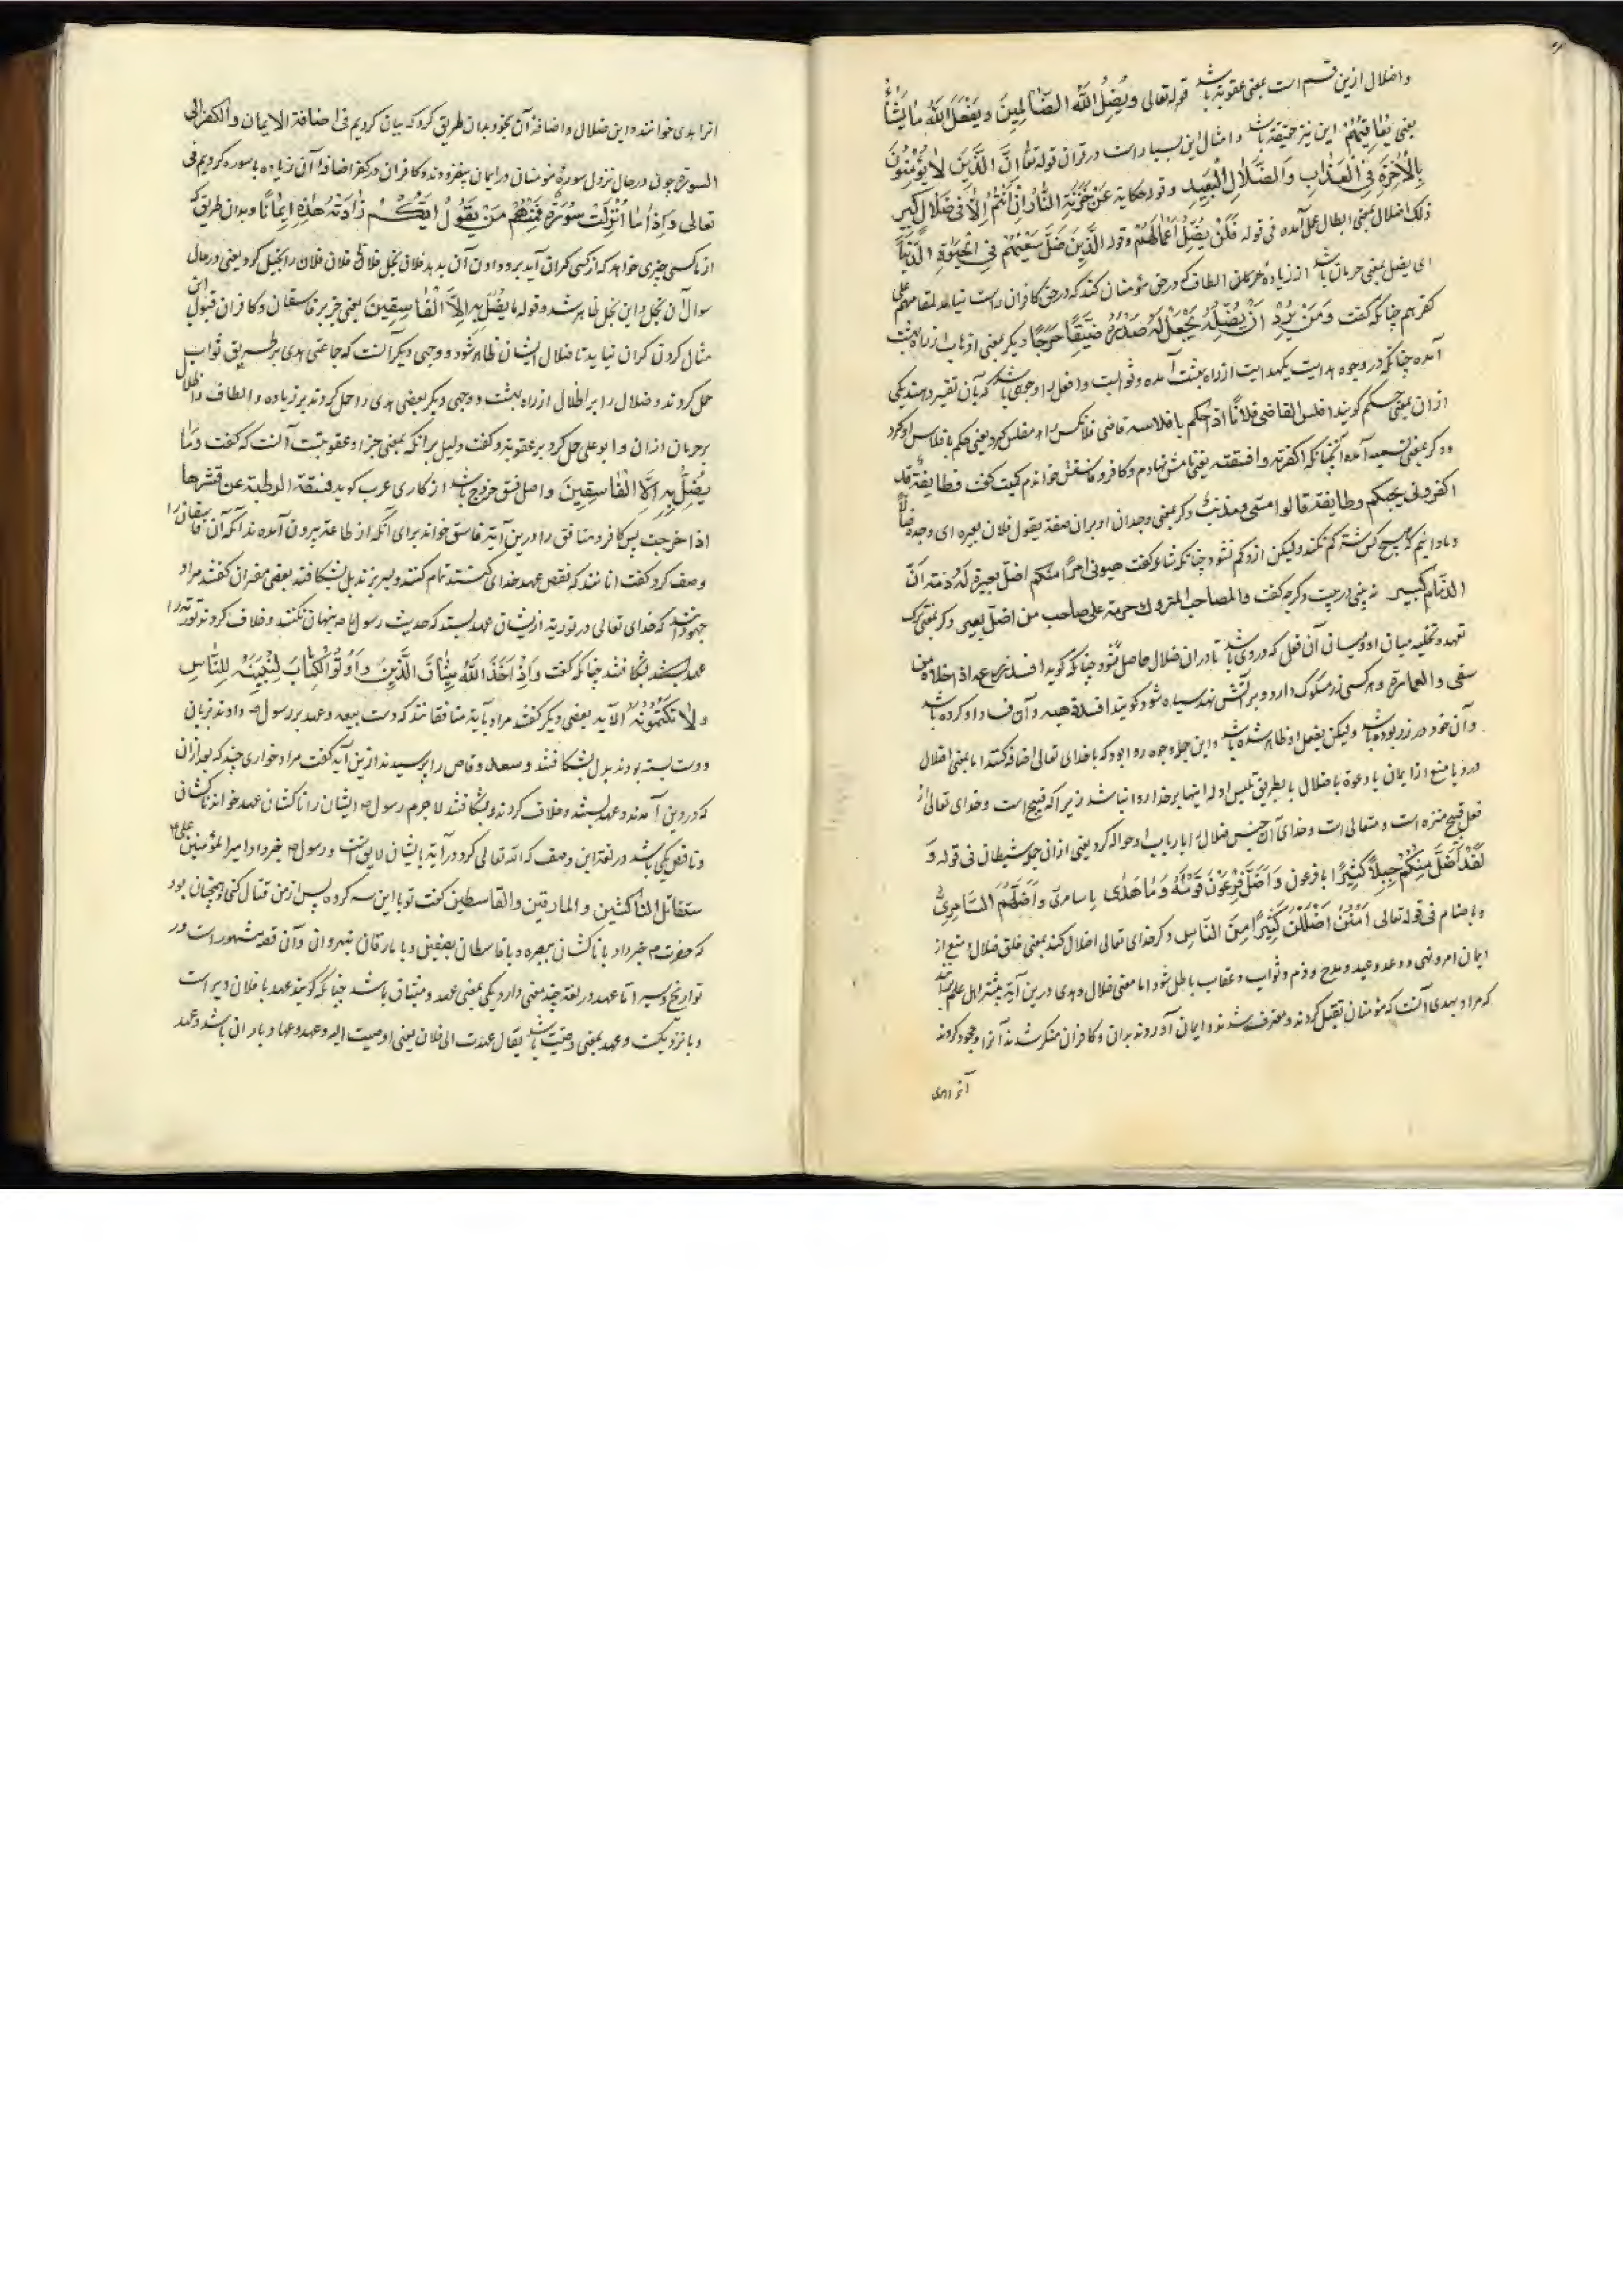 و اضلال ازین قسم است بمعنی عقوبة باشد قوله تعالی وَیُضِلُّ اللّٰهُ الظّالِمِینَ وَیَفْعَلُ اللّٰهُ مَا یَشَاءُ
یعنی یُعَاقِبُهُمْ این نیز حقیقة باشد و امثال این بسیار است در قرآن قوله تعا اِنَّ الَّذِینَ لَا یُؤْمِنُونَ
بِالْآخِرَةِ فِی الْعَذَابِ وَالضَّلَالِ الْبَعِیدِ و قوله حکایة عَنْ خَزَنَةِ النَّارِ اِنْ اَنْتُمْ اِلَّا فِی ضَلَالٍ کَبِیرٍ
ذلک اضلال بمعنی ابطال عمل آمده فی قوله فَلَنْ یُضِلَّ اَعْمَالَهُمْ و قوله الَّذِینَ ضَلَّ سَعْیُهُمْ فِی الْحَیٰوةِ الدُّنْیَا
ای یضل بمعنی حرمان باشد از زیاده الطاف که در حق مؤمنان کند که در حق کافران راست نیاید لمقامهم علی
کفرهم چنانکه گفت وَمَنْ یُرِدْ اَنْ یُضِلَّهُ یَجْعَلْ صَدْرَهُ ضَیِّقًا حَرَجًا دیگر بمعنی اذهاب از راه بهشت
آمده چنانکه در وجوه هدایت یکی هدایت از راه بهشت آمده و ثوابست و افعل را وجوهی باشد که بآن تفسیر دهند یکی
ازان بمعنی حکم گویند افلس القاضی فلانًا اذا حکم بافلاسه قاضی فلانکس را مفلس کرد یعنی حکم بافلاس او کرد
و دگر بمعنی تسمیه آمده آنچنانکه اکفرته و افسقته یعنی نامش نهادم و کافر و فاسقش خواندم کمیت گفت فطایفة قد
اکفرونی بحبکم وطایفة قالوا مسیء ومذنب و دگر بمعنی وجدان او بران صفة یقول فلان بعیره ای وجده ضالًّا
و مادانیم که هیچ کس شتر گم نکند ولیکن ازو گم شود چنانکه شاعر گفت هبونی امرأ منکم اضل بعیره له ذمة ان
الذمام کبیر نه بینی در بیت دگر چه گفت والصاحب المتروک حرمة علی صاحب من اضل بعیر و دگر بمعنی ترک
تعهد و تخلیه میان او و میان آن فعل که در وی باشد تا دران ضلال حاصل شود چنانکه گوید
سقی والعمارة و هر کسی زر مسکوک دارد و بر آتش نهد سیاه شود گویند افسد ذهبه و آن فساد او کرده باشد
و آن خود در زر بوده باشد ولیکن بفعل او ظاهر شده باشد و این جمله وجوه روا بود که با خدای تعالی اضافه کنند اما بمعنی اضلال
در دیا منع از ایمان یا دعوة با ضلال یا بطریق تلبیس ادله اینها بر خدا روا نباشد زیرا که قبیح است و خدای تعالی از
فعل قبیح منزه است و متعالی است و خدای آن جنس ضلال را باربابها حواله کرد یعنی ازان جمله شیطان فی قوله وَ
لَقَدْ اَضَلَّ مِنْکُمْ جِبِلًّا کَثِیرًا با فرعون وَاَضَلَّ فِرْعَوْنُ قَوْمَهُ وَمَا هَدٰی با سامری وَاَضَلَّهُمُ السَّامِرِیُّ
و باصنام فی قوله تعالی اَضْلَلْنَ کَثِیرًا مِنَ النَّاسِ و گر خدای تعالی اضلال کند بمعنی خلق ضلال و منع از
ایمان امر و نهی و وعد و وعید و مدح و ذم و ثواب و عقاب باطل شود اما معنی ضلال و هدی درین آیه بیشتر اهل علم
که مراد بهدی آنست که مؤمنان تقبل کردند و معترف شدند و ایمان آوردند بدان و کافران منکر شدند آنرا و جحود کردند
انرا بدی خوانند و این ضلال و اضافة آن بخود بدان طریق کرد که بیان کردیم فی اضافة الایمان والکفر الی
السورة چون در حال نزول سورة مؤمنان در ایمان بیفزودند و کافران در کفر اضافة آن زیاده با سوره کردیم فی
تعالی وَاِذَا مَا اُنْزِلَتْ سُورَةٌ فَمِنْهُمْ مَنْ یَقُولُ اَیُّکُمْ زَادَتْهُ هٰذِهِ اِیمَانًا و بدان طریق که
از ما کسی چیزی خواهد که از کسی گران آید برو دادن آن بدهد فلان بخل فلان فلان فلان را بخیل کرد یعنی در حال
سوال آن بخل و این بخل ظاهر شد و قوله ما یُضِلُّ بِهِ اِلَّا الْفَاسِقِینَ یعنی جز بر فاسقان و کافران قبول این
مثال کردن گران نیاید تا ضلال ایشان ظاهر شود و وجهی دیگر آنست که جماعتی هدی بر طریق ثواب
حمل کردند و ضلال را بر اضلال از راه بهشت و وجهی دیگر بعضی هدی را حمل کردند بر زیاده و الطاف و اضلال
بر حرمان ازان و ابو علی حمل کرد بر عقوبة و گفت دلیل برانکه بمعنی جزا و عقوبتست آنست که گفت وَمَا
یُضِلُّ بِهِ اِلَّا الْفَاسِقِینَ و اصل فسق خروج باشد از کاری عرب گوید فسقة الرطبة عن قشرها
اذا خرجت پس کافر و منافق را درین آیة فاسق خواند برای آنکه از طاعة بیرون آمده‌اند آنگه آن فاسقان را
وصف کرد گفت انانند که نقض عهد خدای کنند بعضی مفسران گفتند مراد
جهودانند که خدای تعالی در توریة ازیشان عهد بستد که حدیث رسول ص پنهان نکنند و خلاف کردند توریة را
عهد بستند بشکافتند چنانکه گفت وَاِذْ اَخَذَ اللّٰهُ مِیثَاقَ الَّذِینَ اُوتُوا الْکِتَابَ لِتُبَیِّنُنَّهُ لِلنَّاسِ
وَلَا تَکْتُمُونَهُ الآیه بعضی دیگر گفتند مراد بآیة منافقانند که دست بیعه و عهد بر رسول ص دادند بزبان
و دست بسته بودند بدل بشکافتند و سعد وقاص را پرسیدند ازین آیه گفت مراد خوارج اند که بعد ازان
که در دین آمدند و عهد بستند و خلاف کردند و بشکافتند لاجرم رسول ص ایشان را ناکثان عهد خواند ناکثان
و ناقض یکی باشد در لغة این وصف که الله تعالی کرد در آیة بایشان لایق است و رسول ص خبر داد امیر المؤمنین علی را
ستقاتل الناکثین والمارقین والقاسطین گفت تو با این سه گروه پس از من قتال کنی و همچنان بود
که حضرت ص خبر داد با ناکثان ببصره و با قاسطان بصفین و با مارقان بنهروان و آن قصه مشهور است در
تواریخ و سیر اما عهد در لغة چند معنی دارد یکی بمعنی عهد و میثاق باشد چنانکه گویند عهد با فلان دیر است
و یا نزدیکست و عهد بمعنی وصیت باشد یقال عهدت الی فلان یعنی اوصیت الیه و عهد و عهاد باران باشد و عهد